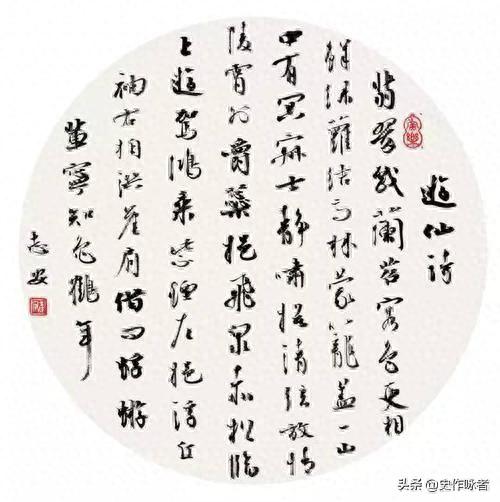 遊仙詩
翡翠戏蘭苕容色更相
鲜绿蘿结高林蒙籠盖一山
中有冥寂士静嘯抚清弦放情
陵霄外嚼蘂挹飛泉赤松临
上遊驾鴻乘紫煙左挹浮丘
袖右拍洪崖肩借问蜉蝣
輩寧知龟鶴年
志安
头条 @史作咏者